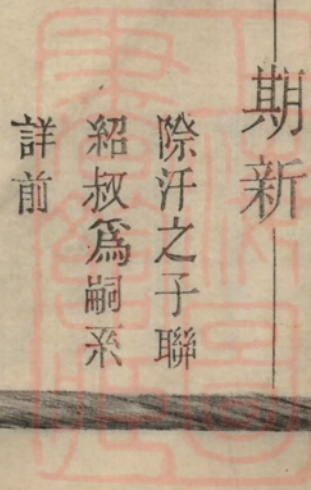 期新
際汙之子聯
紹叔爲嗣系
詳前